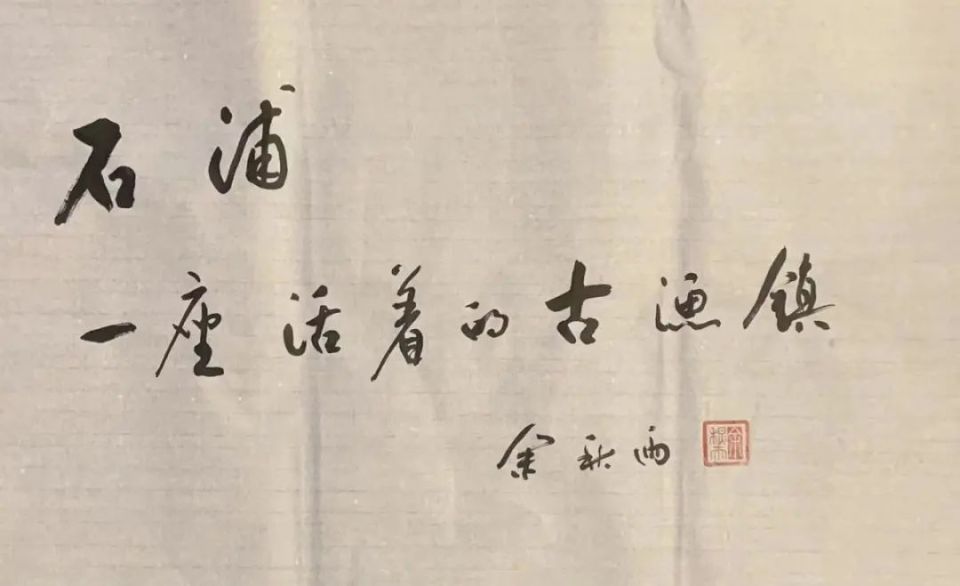 石浦
一座活着的古漁鎮
余秋雨